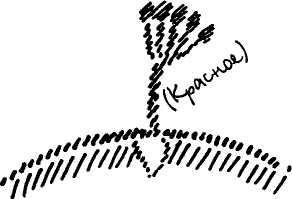 (Красное)